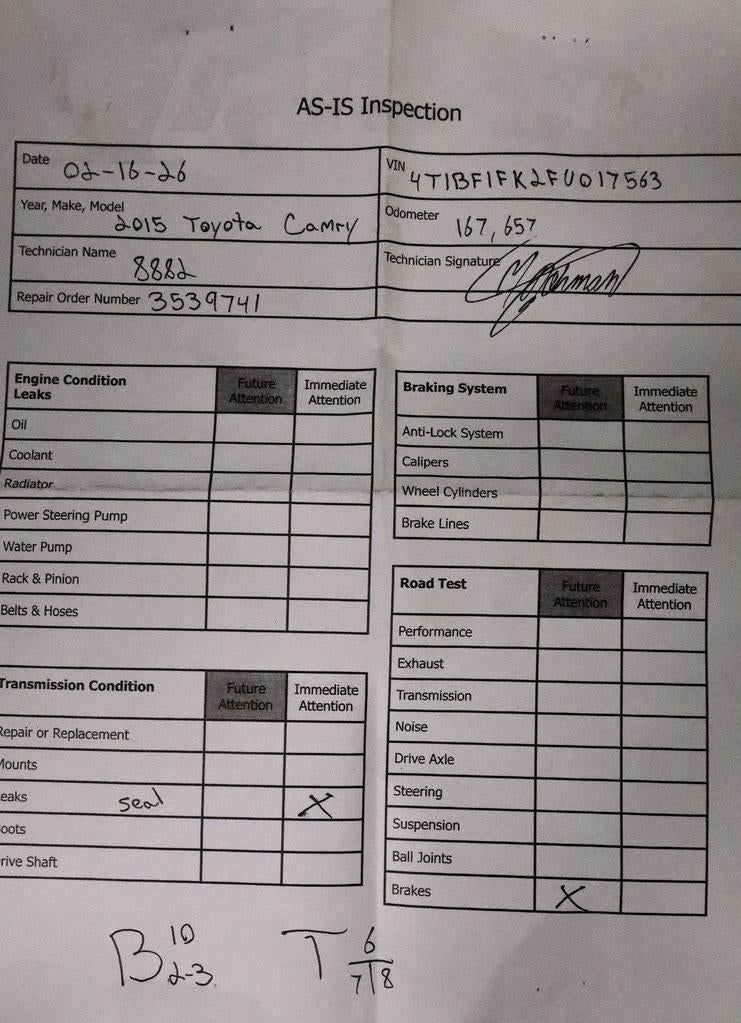 AS-IS Inspection
Date 02-16-26
VIN 4T1BF1FK2FU017563
Year, Make, Model 2015 Toyota Camry
Odometer 167,657
Technician Name 8882
Technician Signature
Repair Order Number 3539741
Engine Condition Leaks Future Attention Immediate Attention
Oil
Coolant
Radiator
Power Steering Pump
Water Pump
Rack & Pinion
Belts & Hoses
Braking System Future Attention Immediate Attention
Anti-Lock System
Calipers
Wheel Cylinders
Brake Lines
Transmission Condition Future Attention Immediate Attention
Repair or Replacement
Mounts
eaks seal X
oots
rive Shaft
Road Test Future Attention Immediate Attention
Performance
Exhaust
Transmission
Noise
Drive Axle
Steering
Suspension
Ball Joints
Brakes X
B 10 2-3
T 6 7|8